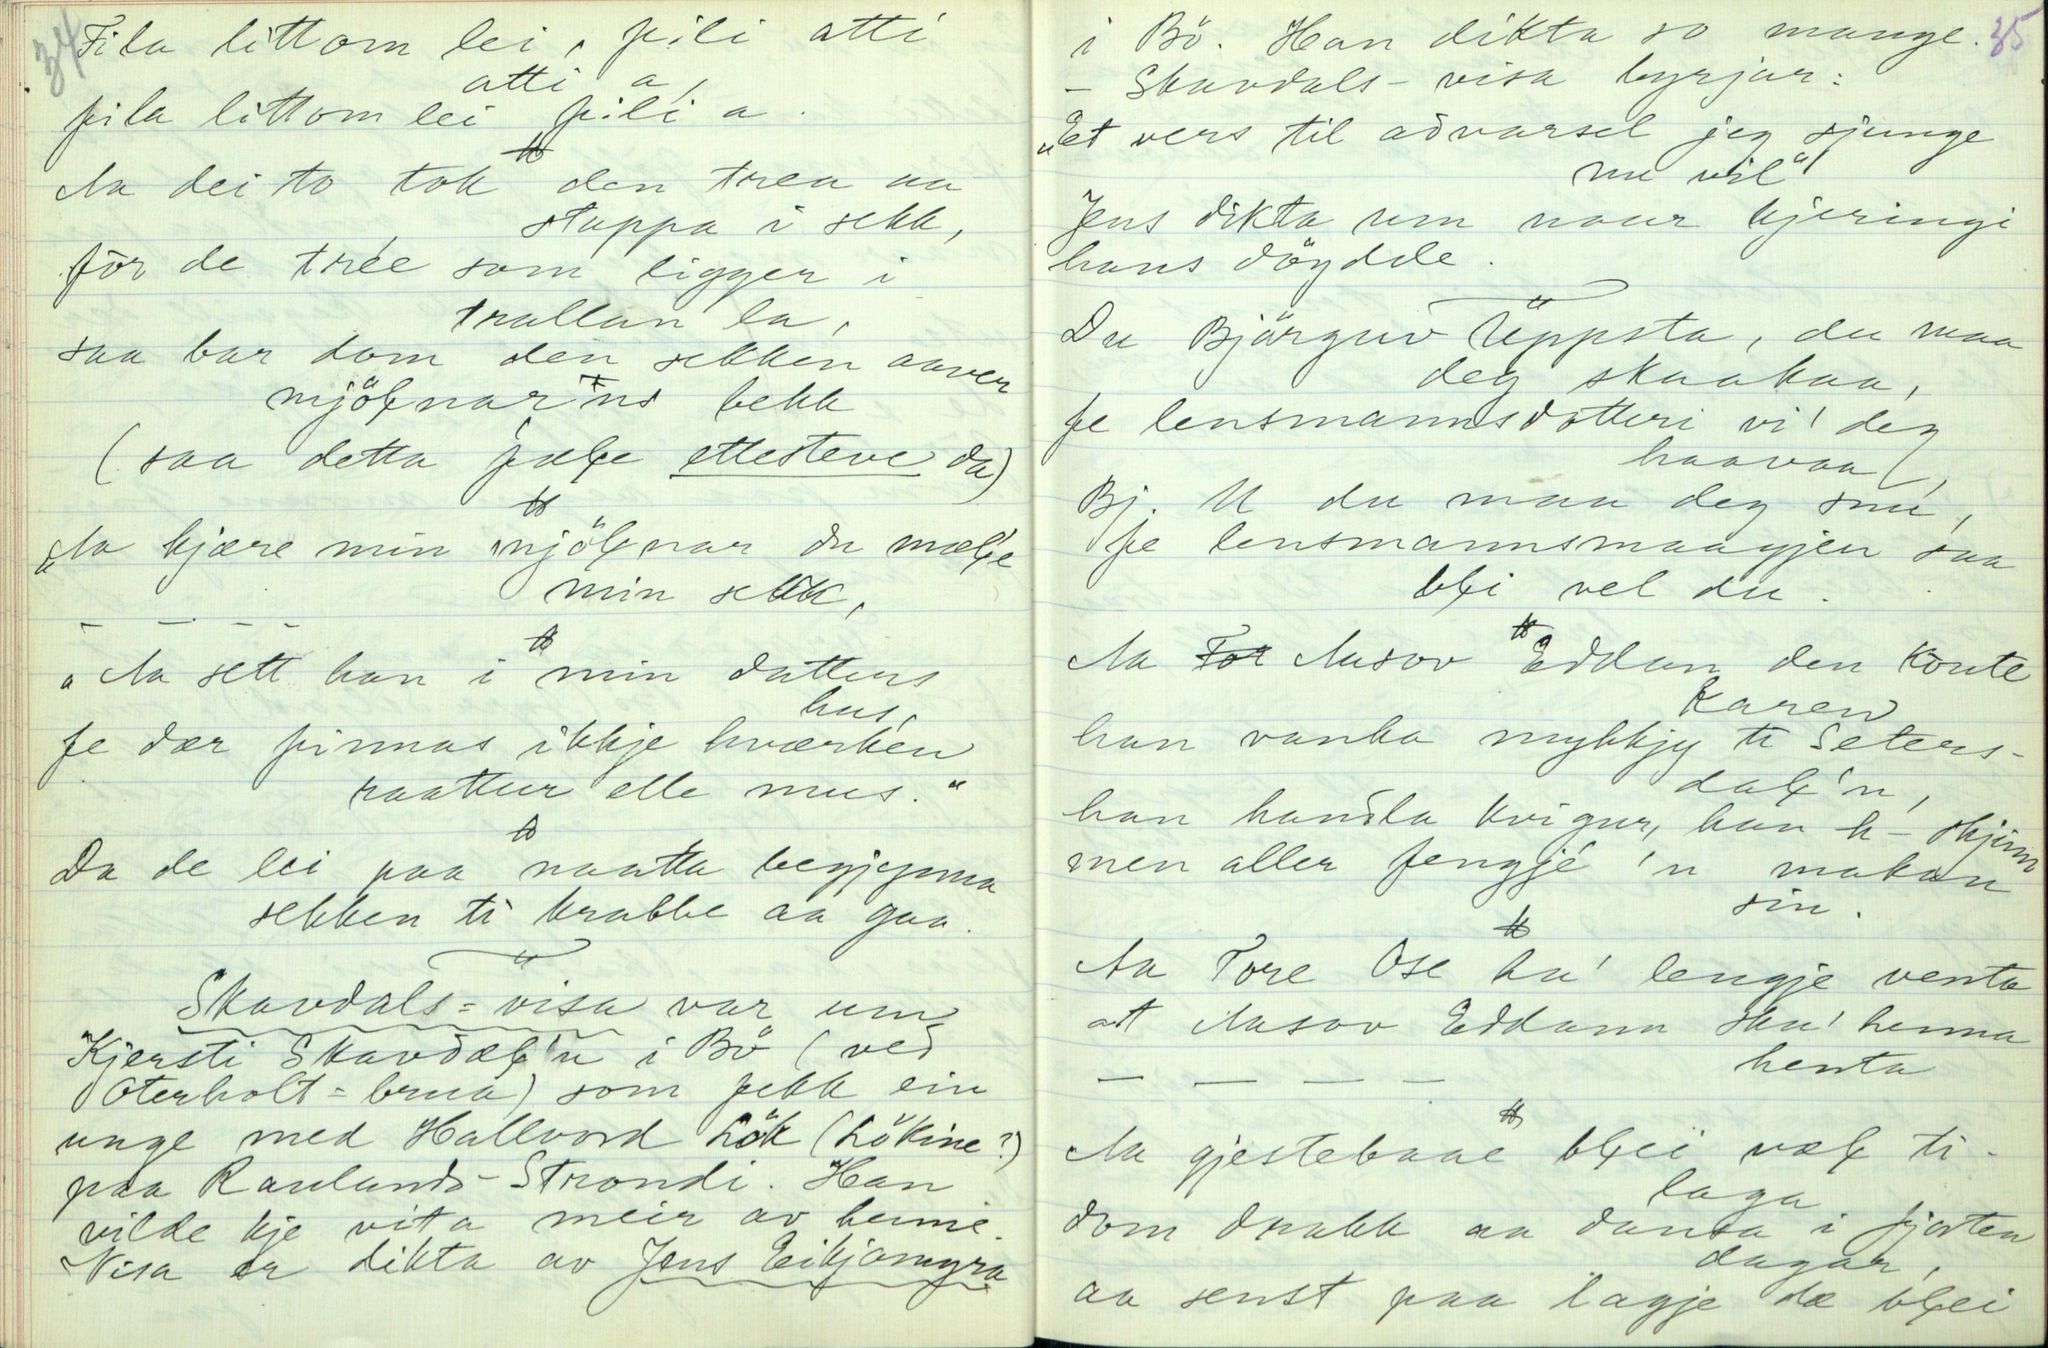 34
Fila littom lei, fili atti
atti a,
fila littom lei fili a.
Aa dei to tok den trea aa
stappa i sekk,
før de trée som ligger i
trallan la,
saa bar dom den sekken aaver
mjölnar'ns bekk
(saa detta fælje ettesteve da)
"Aa kjære min mjölnar du mæle
min sekk,
— — — —
"Aa sett han i min datters
hus,
fe dær finnas ikkje hværken
raattur elle mus."
Da de lei paa naatta begjynna
sekken ti krabbe aa gaa.
Skavdals-visa var um
Kjersti Skavdæl'n i Bö (ved
Oterholt-brua) som fekk ein
unge med Hallvord Lök (Lökine?)
paa Raulands-Strondi. Han
vilde kje vita meir av henne.
Visa er dikta av Jens Eikjamyra
35
i Bö. Han dikta so mange.
- Skavdals-visa byrjar:
"Et vers til advarsel jeg sjunge
nu vil"
Jens dikta um naar kjeringi
hans döydde.
Du Björguv Uppsta, du maa
deg skaakaa,
fe lensmannsdotteri vi' deg
haavaa,
Bj. U du maa deg snu,
fe lensmannsmaagjen saa
blei vel du.
Aa For Aasov Eddan den konte
Karen
han vanka mykkjy ti Seters-
dal'n,
han handla kvigur, han h- skjinn
men aller fengje 'n makan
sin.
Aa Tore Ose ha' lengje venta
at Aasov Eddann sku' henna
henta
— — — —
Aa gjestebaae blei væl ti-
laga
dom drakk aa dansa i fjorten
dagar,
aa senst paa lagje dæ blei